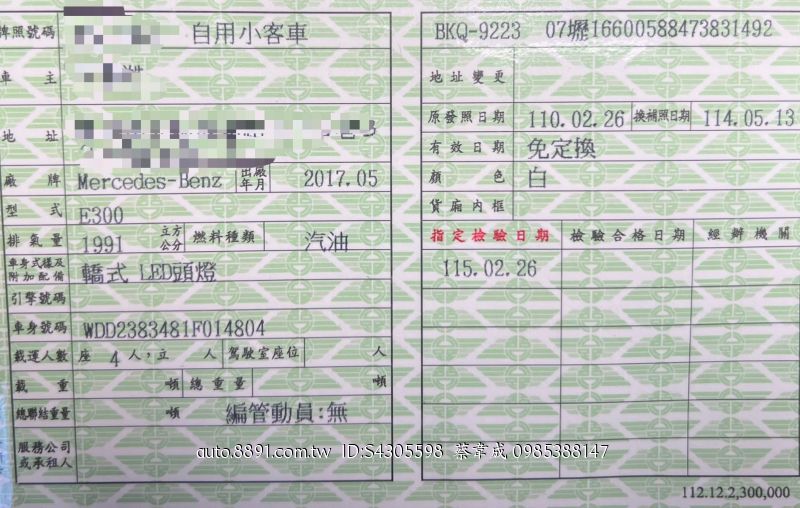 牌照號碼 自用小客車
車主
地址
廠牌 Mercedes-Benz 出廠年月 2017.05
型式 E300
排氣量 1991 立方公分 燃料種類 汽油
車身式樣及附加配備 轎式 LED頭燈
引擎號碼
車身號碼 WDD2383481F014804
載運人數 座 4 人,立 人 駕駛室座位 人
載重 噸 總重量 噸
總聯結重量 噸 編管動員:無
服務公司或承租人
BKQ-9223 07壢16600588473831492
地址變更
原發照日期 110.02.26 換補照日期 114.05.13
有效日期 免定換
顏色 白
貨廂內框
指定檢驗日期 檢驗合格日期 經辦機關
115.02.26
auto.8891.com.tw ID:S4305598 蔡韋成 0985388147
112.12.2,300,000